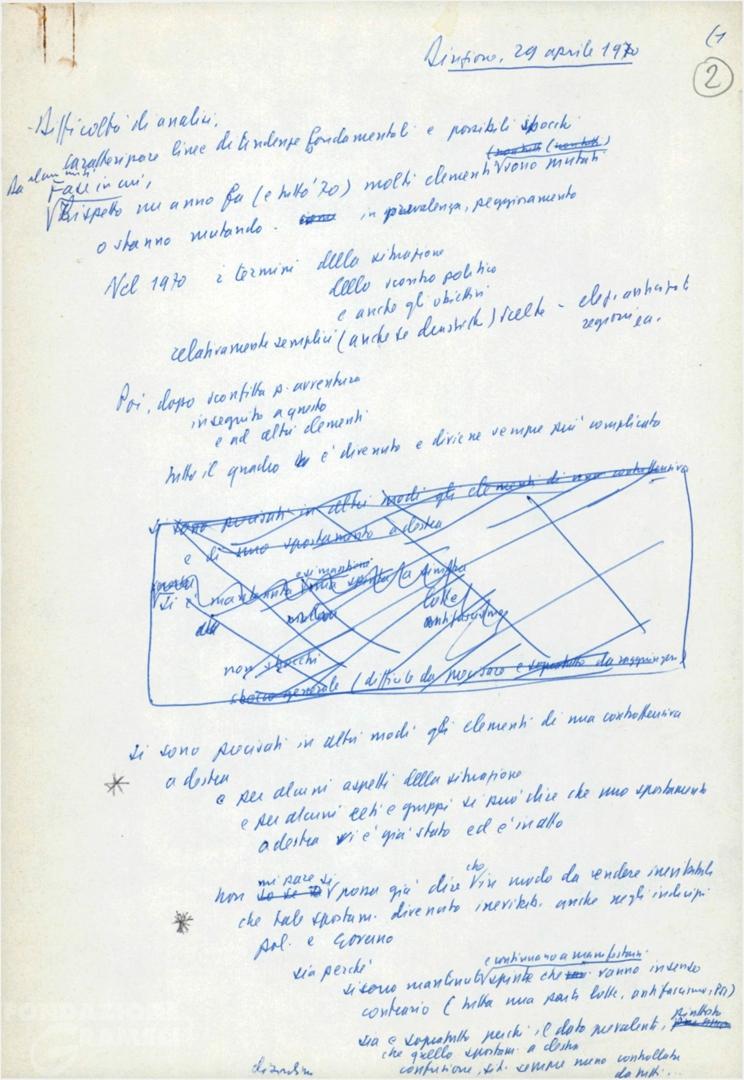 Direzione, 29 aprile 1970
2
- Difficoltà di analisi.
caratterizzare linee di tendenza fondamentali e possibili sbocchi
Da alcuni
Fase in cui,
Rispetto un anno fa (e tutto '70) molti elementi sono mutati
o stanno mutando. in prevalenza, peggioramento
Nel 1970 i termini della situazione
dello scontro politico
e anche gli obiettivi
relativamente semplici (anche se drastiche) scelte - elez. anticipate
regioni ea.
Poi, dopo sconfitta p. avventura
in seguito a questo
e ad altri elementi
tutto il quadro è divenuto e diviene sempre più complicato
si sono precisati in altri modi gli elementi di una controffensiva
e di uno spostamento a destra
e si mantiene
si è mantenuta una spinta a sinistra
lotte
antifascismo
non sbocchi
sbocco generale (difficile da precisare e soprattutto da raggiungere)
si sono precisati in altri modi gli elementi di una controffensiva
a destra
e per alcuni aspetti della situazione
e per alcuni ceti e gruppi si può dire che uno spostamento
a destra vi è già stato ed è in atto
mi pare si che
non possa già dire in modo da rendere inevitabile
che tale spostam. divenuto inevitab. anche negli indirizzi
pol. e Governo
sia perché
e continuano a manifestarsi
si sono mantenute spinte che vanno in senso
contrario (tutta una parte lotte, antifascismo, PSI)
sia e soprattutto perché il dato prevalente, piuttosto
che quello spostam. a destra
confusione, sit. sempre meno controllata
da tutti...
FONDAZIONE
GRAMSCI